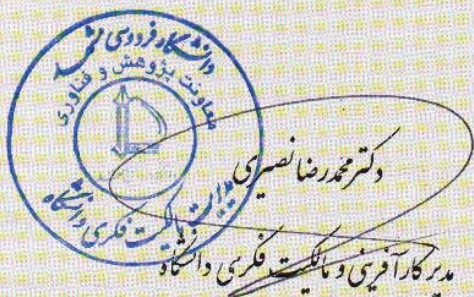 دانشگاه فردوسی مشهد
معاونت پژوهش و فناوری
مالکیت فکری دانشگاه
دکتر محمدرضا نصیری
مدیر کارآفرینی و مالکیت فکری دانشگاه